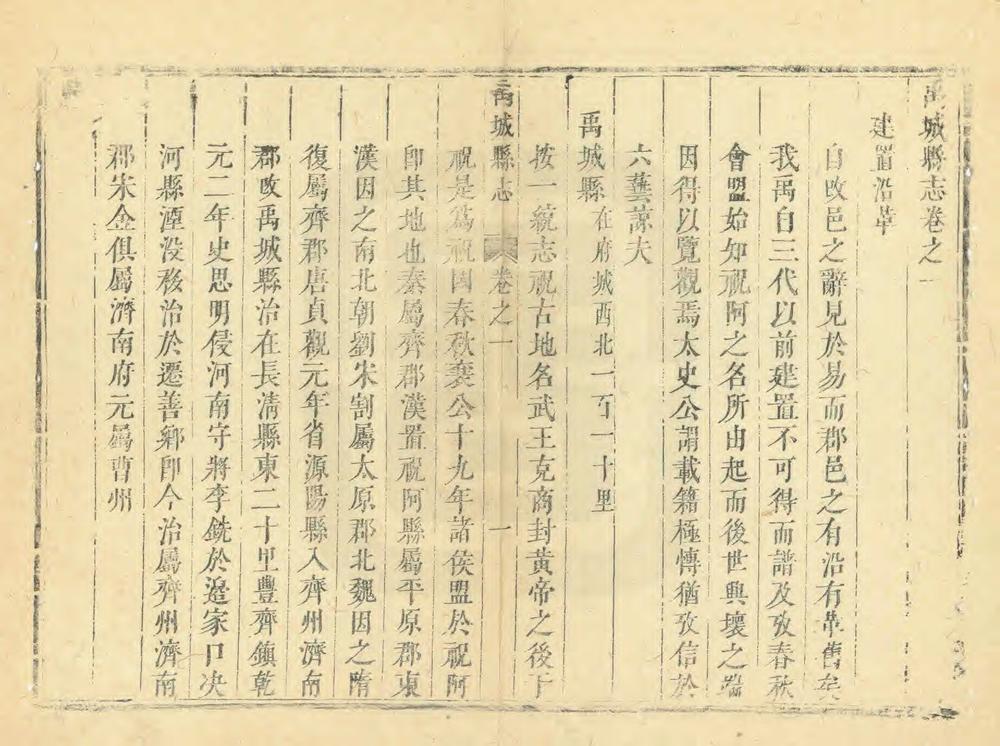 禹城縣志卷之一
建置沿革
自改邑之辭見於易而郡邑之有沿有革舊矣
我禹自三代以前建置不可得而譜及攷春秋
會盟始知祝阿之名所由起而後世興壞之端
因得以覽觀焉太史公謂載籍極慱猶攷信於
六藝諒夫
禹城縣在府城西北一百一十里
按一統志祝古地名武王克商封黃帝之後于
禹城縣志 卷之一 一
祝是爲祝國春秋襄公十九年諸侯盟於祝阿
卽其地也秦屬齊郡漢置祝阿縣屬平原郡東
漢因之南北朝劉宋割屬太原郡北魏因之隋
復屬齊郡唐貞觀元年省源陽縣入齊州濟南
郡改禹城縣治在長清縣東二十里豐齊鎮乾
元二年史思明侵河南守將李銑於邉家口决
河縣湮没移治於遷善鄉卽今治屬齊州濟南
郡宋金俱屬濟南府元屬曹州